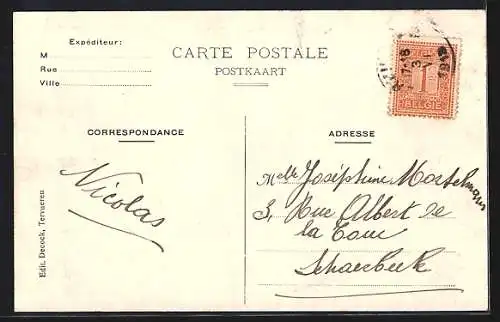 Expéditeur:
M
Rue
Ville
CARTE POSTALE
POSTKAART
1
BELGIE
CORRESPONDANCE
ADRESSE
Nicolas
Melle Joséphine Mortelmans
3, Rue Albert de
la Tour
Schaerbeek
Edit. Decock, Tervueren